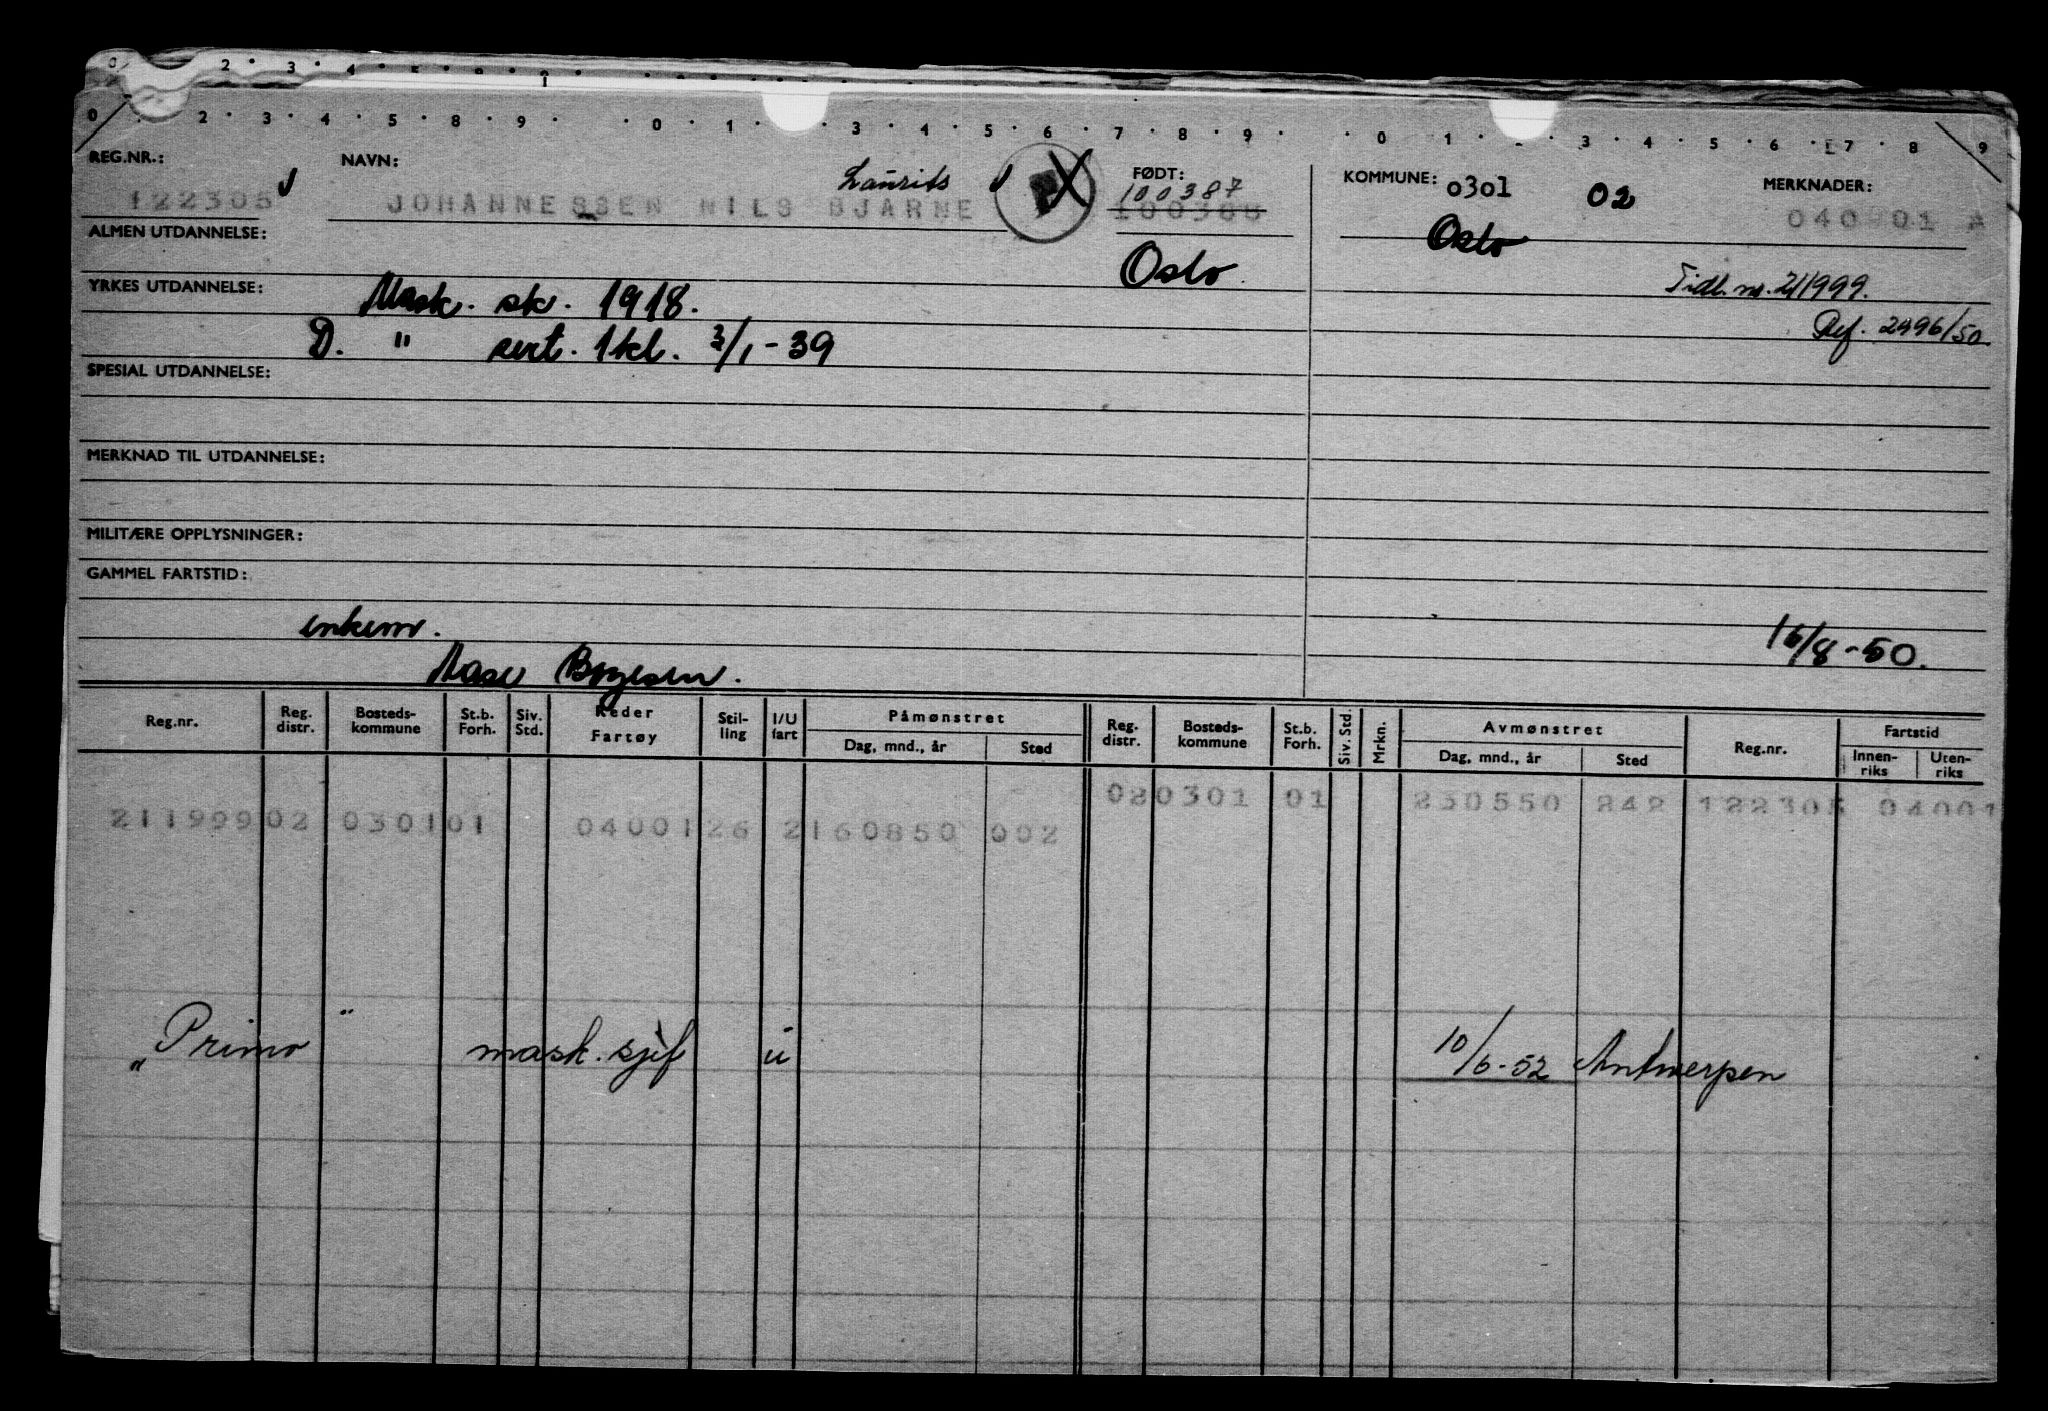 0 2 3 4 5 8 9 0 1 3 4 5 6 7 8 9 0 1 3 4 5 6 7 8 9
REG.NR.: NAVN: Laurits FØDT: 100387 KOMMUNE: 0301 02 MERKNADER:
122305 JOHANNESSEN NILS BJARNE 100388 Oslo 040 01 A
ALMEN UTDANNELSE: Oslo
YRKES UTDANNELSE: Mask. sk. 1918. Tidl. nr. 211999.
D. " sert. 1kl. 3/1-39 Ref. 2496/50
SPESIAL UTDANNELSE:
MERKNAD TIL UTDANNELSE:
MILITÆRE OPPLYSNINGER:
GAMMEL FARTSTID:
enkem. 16/8-50.
Aase
Reg.nr. Reg. distr. Bosteds-kommune St.b. Forh. Siv. Std. Reder Fartøy Stil-ling I/U fart Påmønstret Dag, mnd., år Sted Reg. distr. Bosteds-kommune St.b. Forh. Siv. Std. Mrkn. Avmønstret Dag, mnd., år Sted Reg.nr. Fartstid Innen-riks Uten-riks
211999 02 0301 01 0400126 2 160850 002 020301 01 230550 242 122305 04001
"Primo" mask. sjef u 10/6-52 Antwerpen